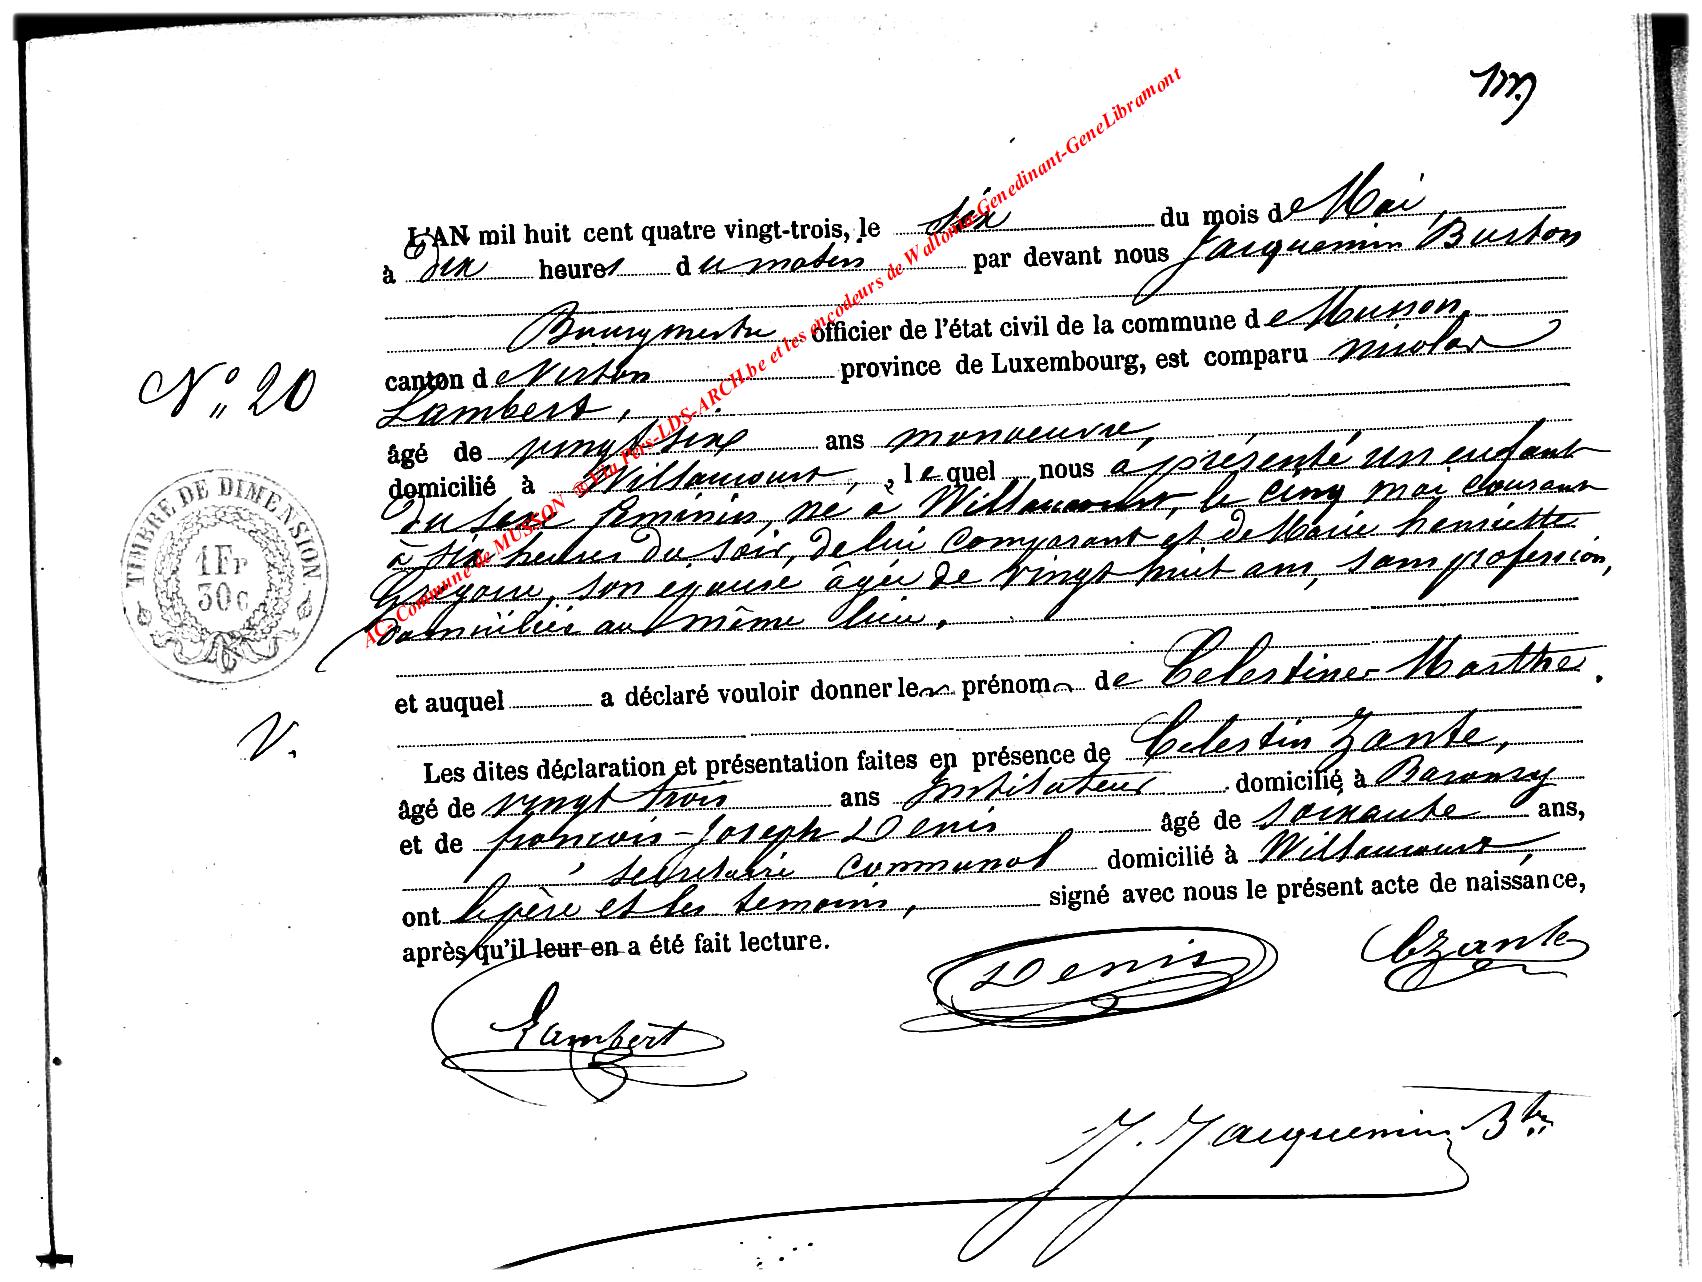 m.)
L'AN mil huit cent quatre vingt-trois, le six du mois de Mai,
à dix heures du matin par devant nous Jacquemin Burton
Bourgmestre officier de l'état civil de la commune de Musson
canton de Virton province de Luxembourg, est comparu Nicolas
Lambert,
N° 20
âgé de vingt six ans manoeuvre,
domicilié à Willancourt, , lequel nous a présenté un enfant
du sexe féminin, né à Willancourt, le cinq mai courant
à six heures du soir, de lui comparant et de Marie henriette
Grégoire, son épouse âgée de vingt huit ans, sans profession,
domiciliée au même lieu.
TIMBRE DE DIMENSION
1 Fr
30 c
et auquel a déclaré vouloir donner les prénoms de Celestine-Marthe.
V.
Les dites déclaration et présentation faites en présence de Celestin Zante,
âgé de vingt trois ans Instituteur domicilié à Baranzy
et de françois-Joseph Denis âgé de soixante ans,
secrétaire communal domicilié à Willancourt,
ont le père et les témoins, signé avec nous le présent acte de naissance,
après qu'il leur en a été fait lecture.
Lambert Denis CZante
J. Jacquemin Btn
AC- Commune de MUSSON ® Via Pers-LDS-ARCH.be et les encodeurs de Wallonia-Genedinant-GeneLibramont